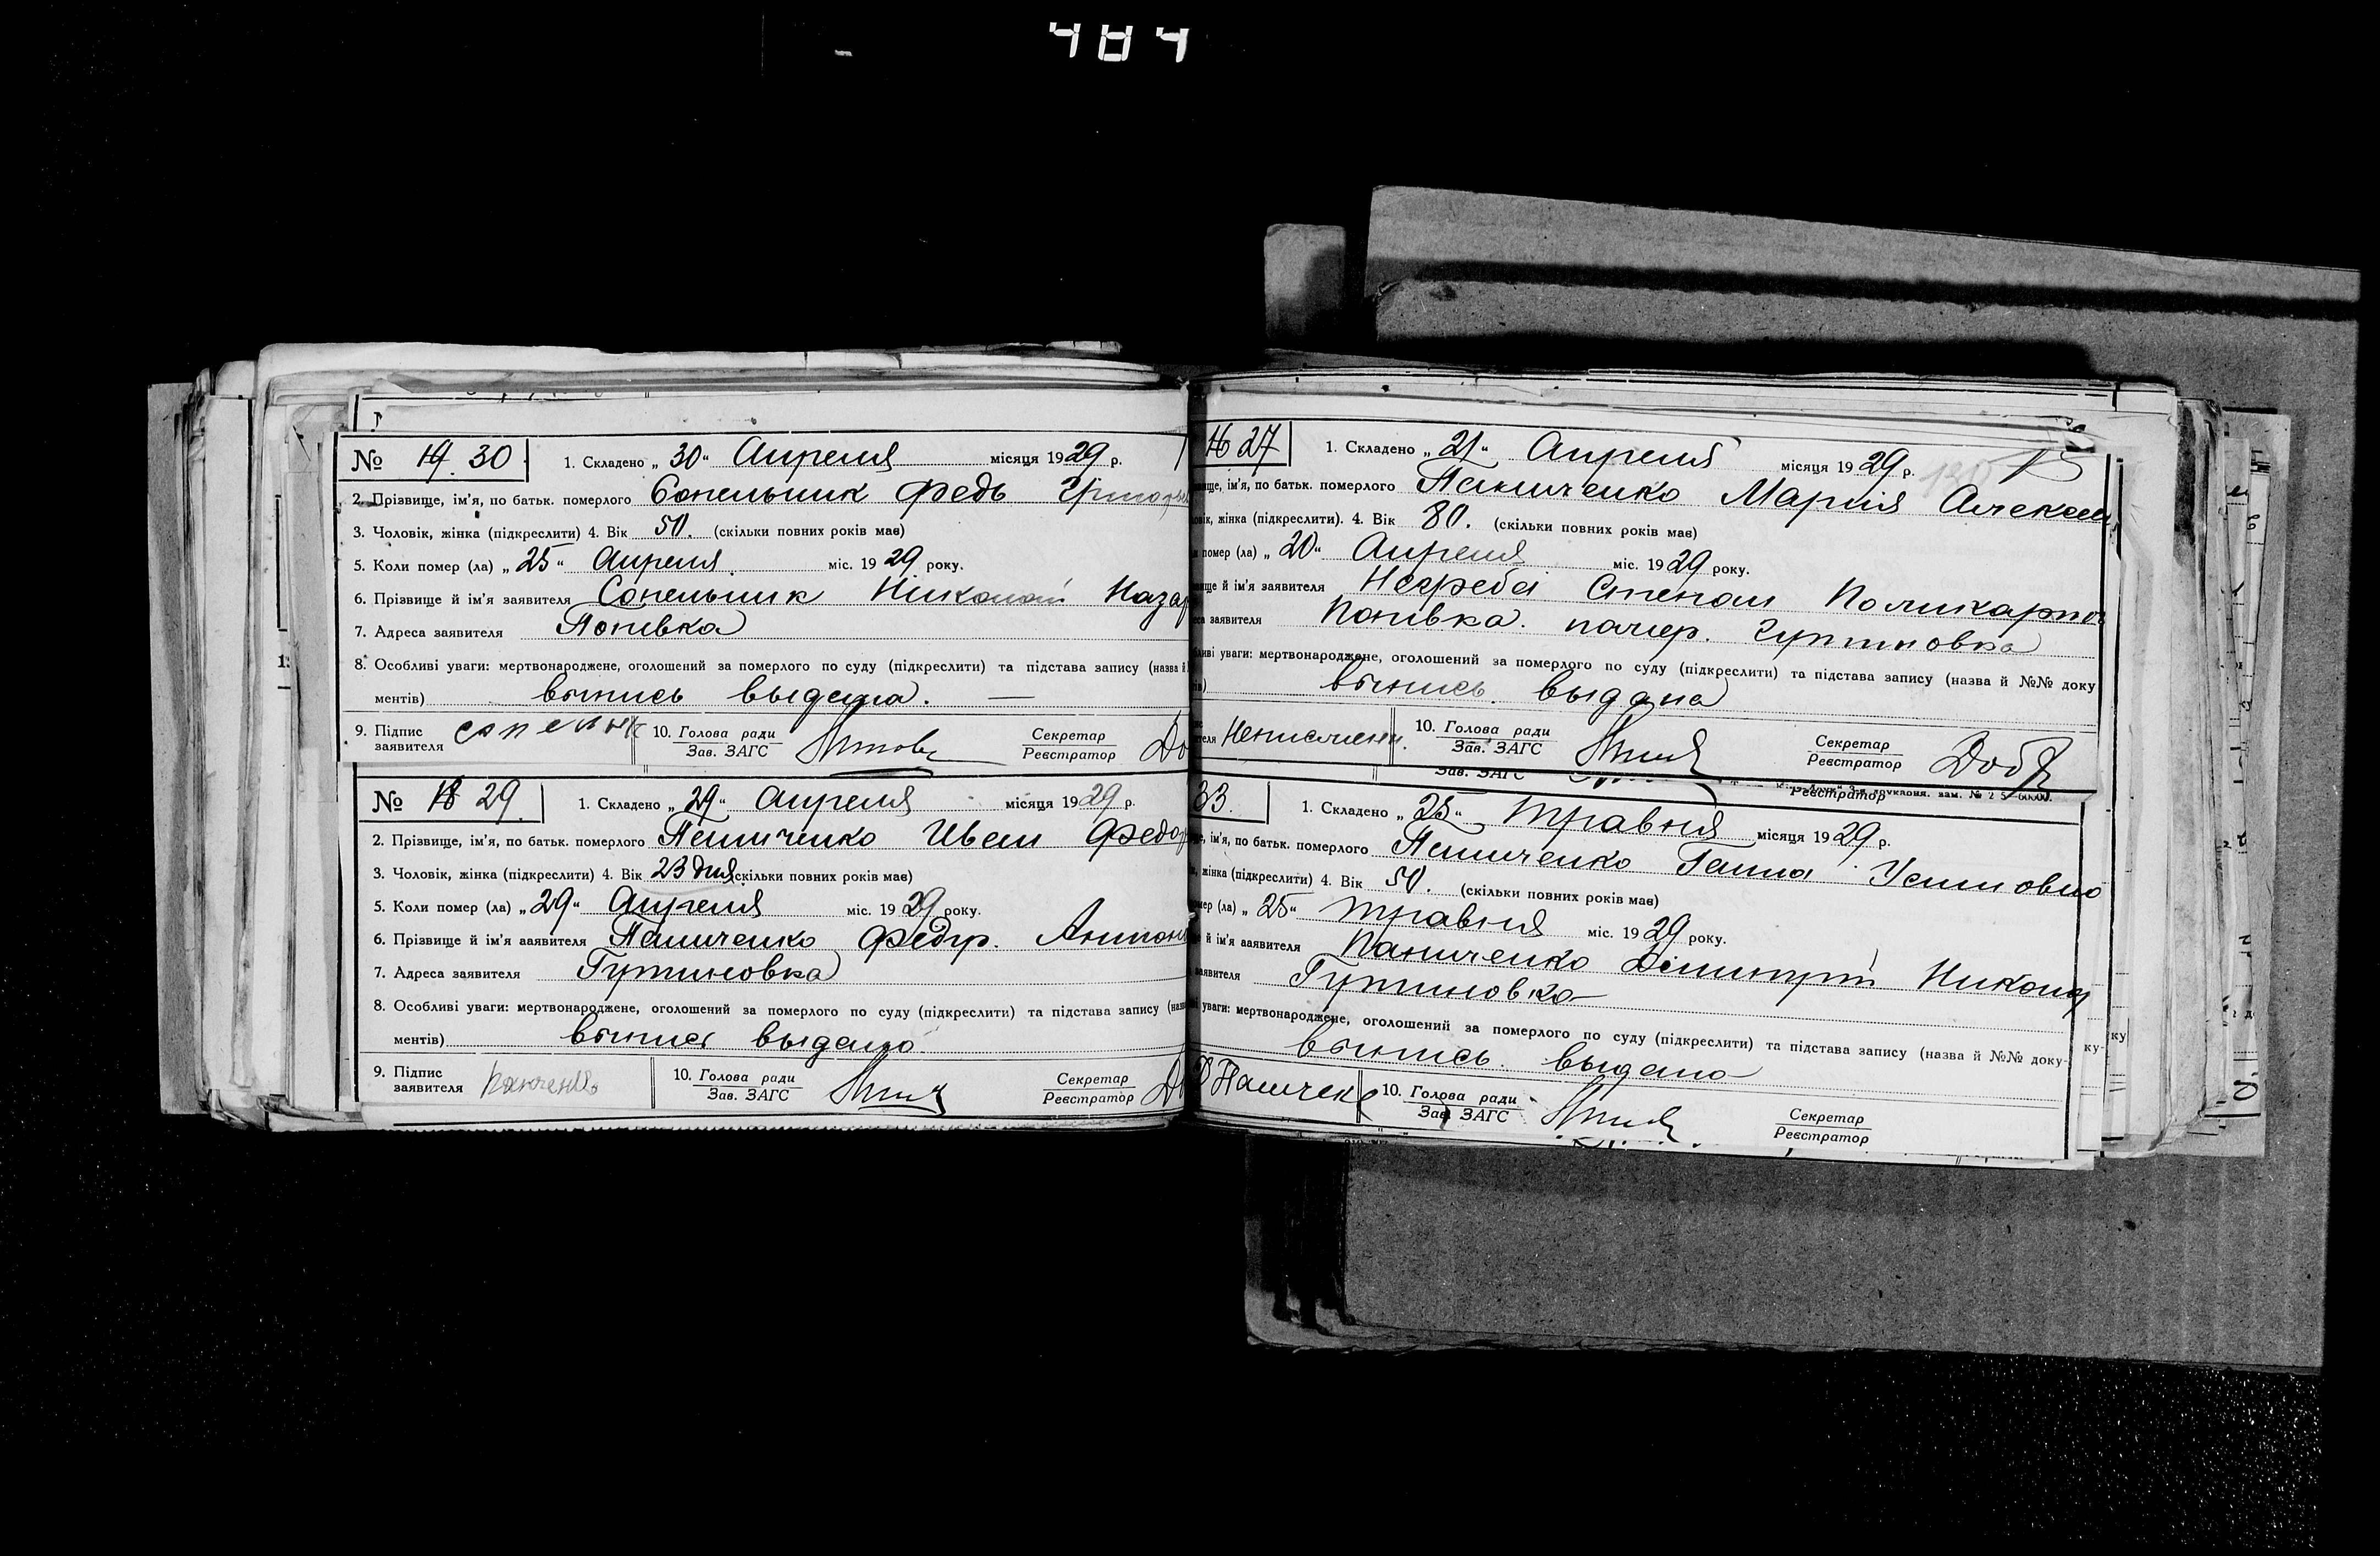 484
№ 19. 30. 1. Складено „ 30 “ Апреля місяця 1929 р.
2. Прізвище, ім'я, по батьк. померлого Сопельник Федь
3. Чоловік, жінка (підкреслити) 4. Вік 50. (скільки повних років має)
5. Коли помер (ла) „ 25 “ Апреля міс. 1929 року.
6. Прізвище й ім'я заявителя Сопельник Николай Назар
7. Адреса заявителя Попівка
8. Особливі уваги: мертвонароджене, оголошений за померлого по суду (підкреслити) та підстава запису (назва й
ментів) выпись выдана. —
9. Підпис заявителя 10. Голова ради
Зав. ЗАГС Секретар
Реєстратор До
№ 18 29. 1. Складено „ 29 “ Апреля місяця 1929 р.
2. Прізвище, ім'я, по батьк. померлого Паниченко Иван Федор
3. Чоловік, жінка (підкреслити) 4. Вік 23 дня (скільки повних років має)
5. Коли помер (ла) „ 29 “ Апреля міс. 1929 року.
6. Прізвище й ім'я заявителя Паниченко Федір. Антон
7. Адреса заявителя Гутиновка
8. Особливі уваги: мертвонароджене, оголошений за померлого по суду (підкреслити) та підстава запису (наз
ментів) выпись выдано
9. Підпис заявителя 10. Голова ради
Зав. ЗАГС Секретар
Реєстратор
16 27 1. Складено „ 21 “ Апреля місяця 1929 р.
вище, ім'я, по батьк. померлого Паниченко Мария Алексан
овік, жінка (підкреслити). 4. Вік 80. (скільки повних років має)
помер (ла) „ 20 “ Апреля міс. 1929 року.
вище й ім'я заявителя Негреба Степан Поликарпов
еса заявителя Попівка. Гутиновка
бливі уваги: мертвонароджене, оголошений за померлого по суду (підкреслити) та підстава запису (назва й №№ доку
ів) выпись. выдана
10. Голова ради
Зав. ЗАГС Секретар
Реєстратор Доб
Зав. ЗАГС Реєстратор
33. 1. Складено „ 25 “ травня місяця 1929 р.
е, ім'я, по батьк. померлого Паниченко Ганна Устиновно
, жінка (підкреслити) 4. Вік 50. (скільки повних років має)
мер (ла) „ 25 “ травня міс. 1929 року.
е й ім'я заявителя Паниченко Димитрій Никон
заявителя Гутиновко
і уваги: мертвонароджене, оголошений за померлого по суду (підкреслити) та підстава запису (назва й №№ доку-
выпись. выдано
10. Голова ради
Зав. ЗАГС Секретар
Реєстратор